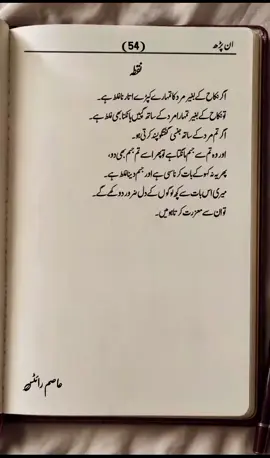 ان پڑھ
(54)
نقطہ
اگر نکاح کے بغیر مرد کا تمہارے کپڑے اتارنا غلط ہے۔
تو نکاح کے بغیر تمہارا مرد کے ساتھ گپیں ہانکنا بھی غلط ہے۔
اگر تم مرد کے ساتھ جنسی گفتگو پسند کرتی ہو۔
اور وہ تم سے جسم مانگتا ہے تو پھر اسے تم جسم بھی دو،
پھر یہ نہ کہو کے بات کرنا سہی ہے اور جسم دینا غلط ہے۔
میری اس بات سے کچھ لوگوں کے دل ضرور دوکھے گے۔
تو ان سے معزرت کرتا ہو میں۔
عاصم رائٹس